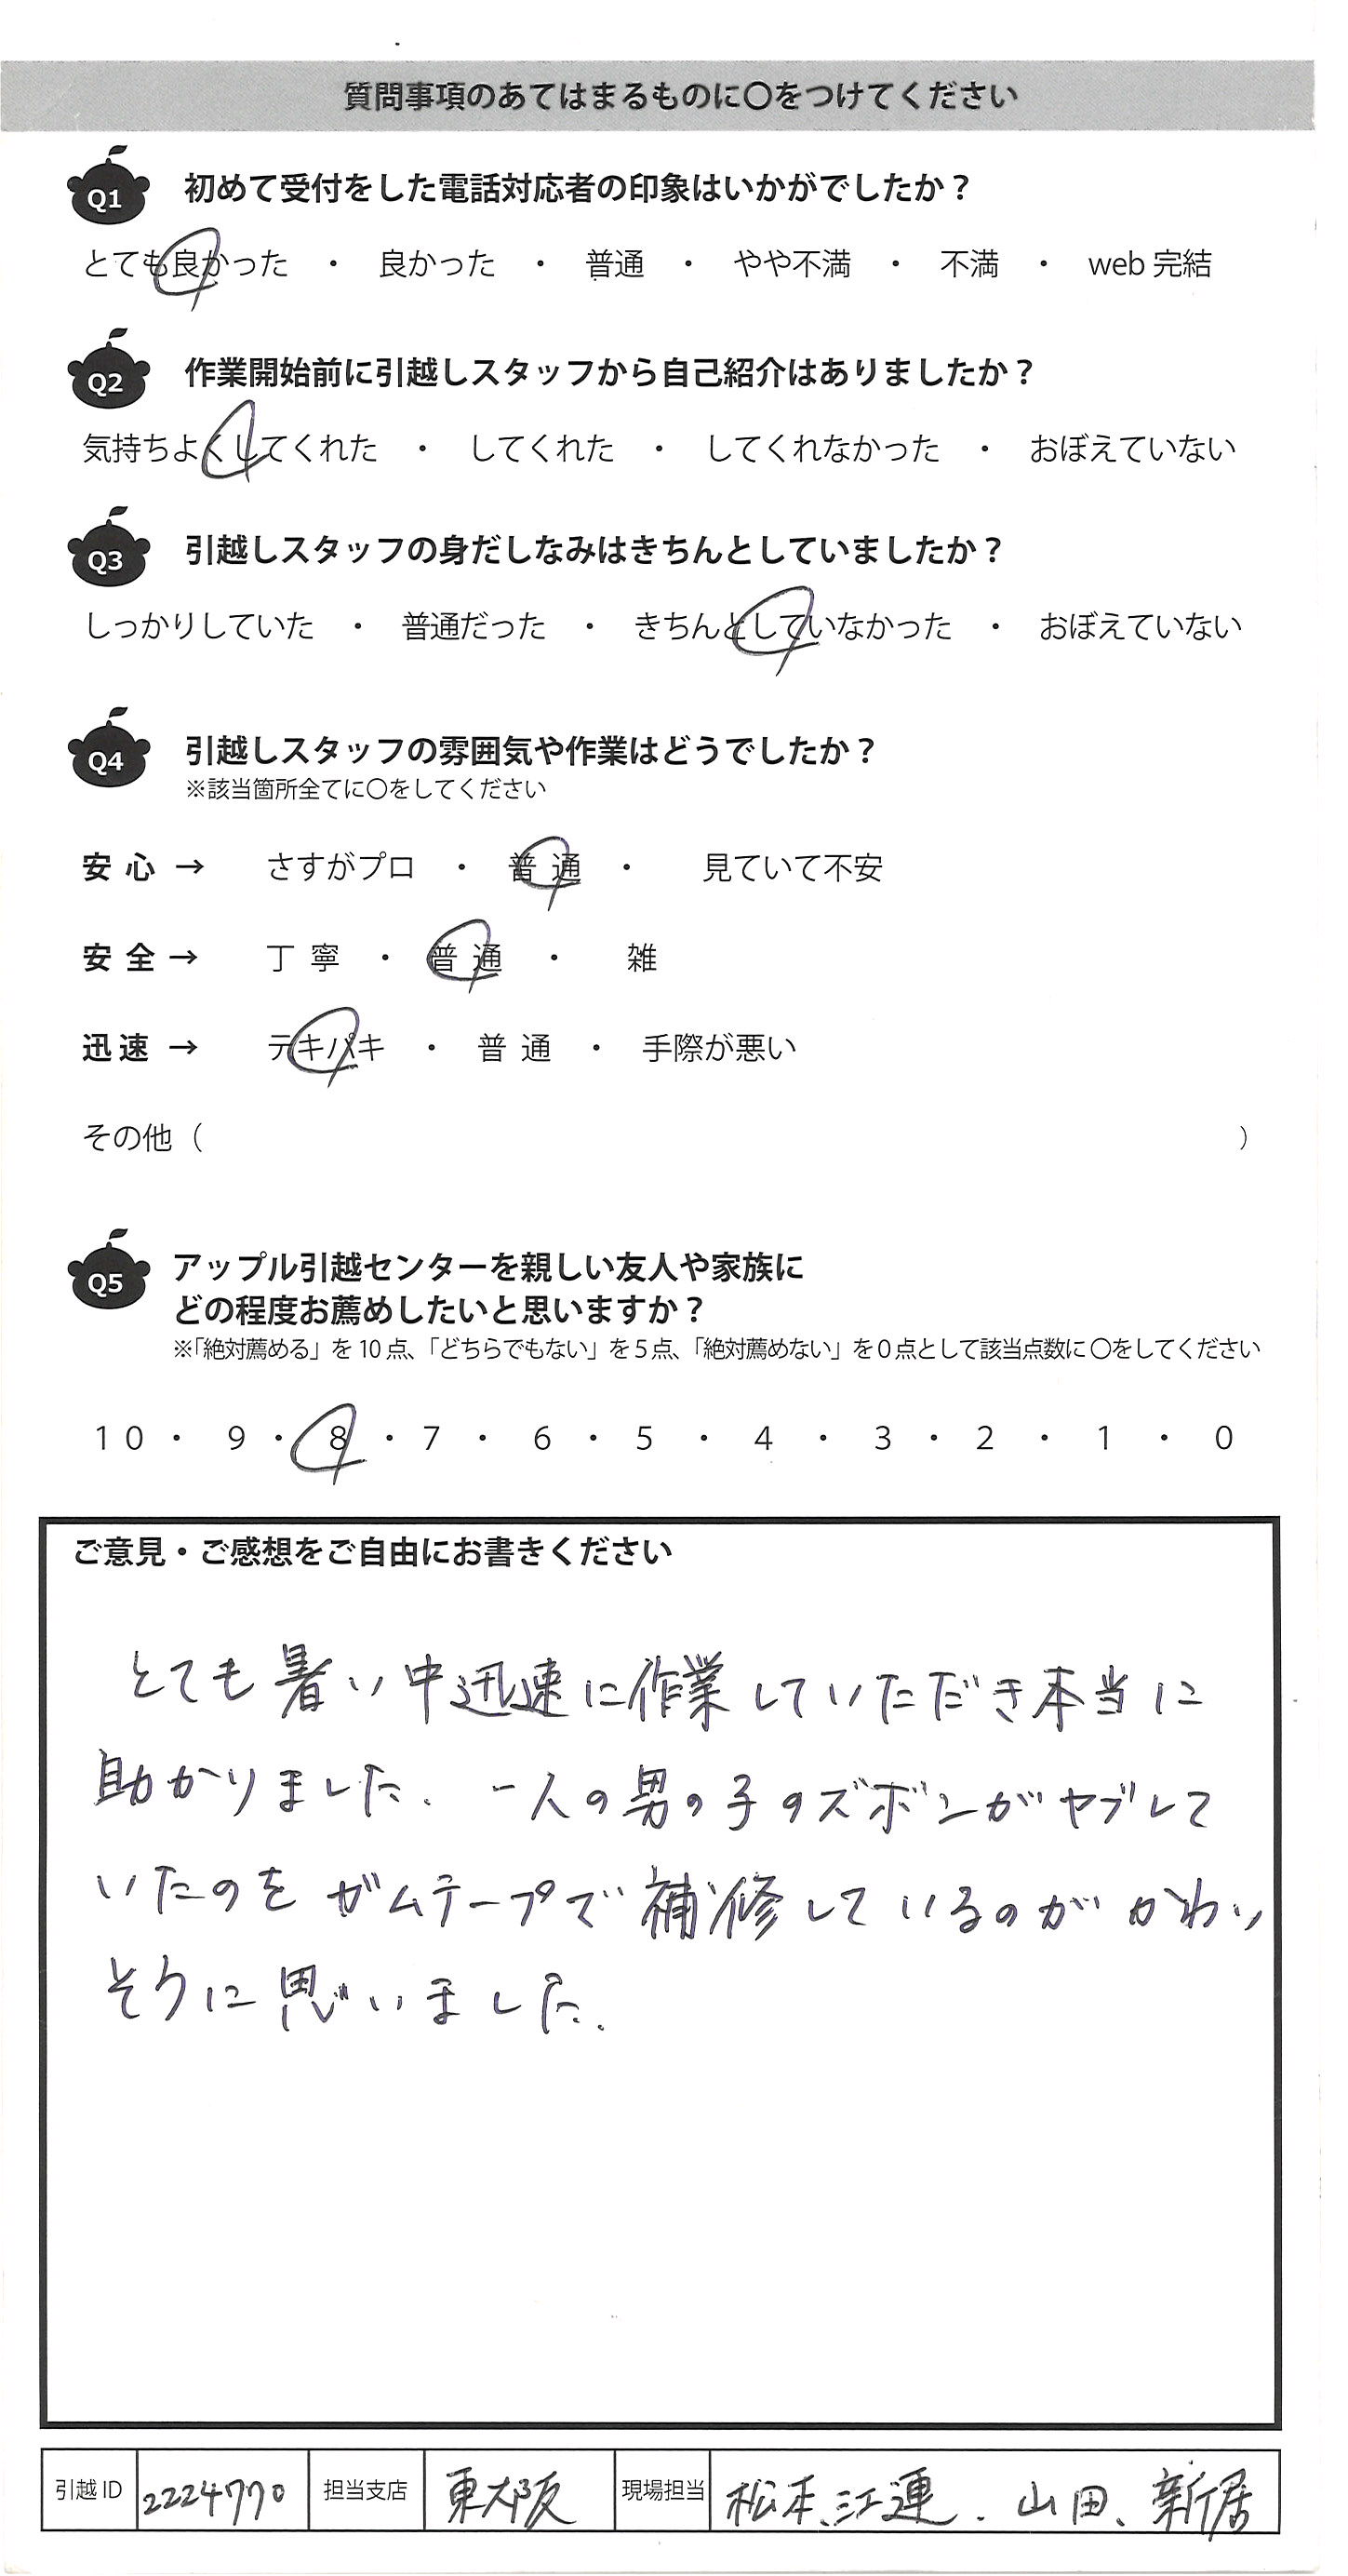 質問事項のあてはまるものに〇をつけてください
Q1 初めて受付をした電話対応者の印象はいかがでしたか？
とても良かった ・ 良かった ・ 普通 ・ やや不満 ・ 不満 ・ web 完結
Q2 作業開始前に引越しスタッフから自己紹介はありましたか？
気持ちよくしてくれた ・ してくれた ・ してくれなかった ・ おぼえていない
Q3 引越しスタッフの身だしなみはきちんとしていましたか？
しっかりしていた ・ 普通だった ・ きちんとしていなかった ・ おぼえていない
Q4 引越しスタッフの雰囲気や作業はどうでしたか？
※該当箇所全てに〇をしてください
安心 → さすがプロ ・ 普通 ・ 見ていて不安
安全 → 丁寧 ・ 普通 ・ 雑
迅速 → テキパキ ・ 普通 ・ 手際が悪い
その他（ ）
Q5 アップル引越センターを親しい友人や家族に
どの程度お薦めしたいと思いますか？
※「絶対薦める」を10点、「どちらでもない」を5点、「絶対薦めない」を0点として該当点数に〇をしてください
10 ・ 9 ・ 8 ・ 7 ・ 6 ・ 5 ・ 4 ・ 3 ・ 2 ・ 1 ・ 0
ご意見・ご感想をご自由にお書きください
とても暑い中迅速に作業していただき本当に
助かりました。一人の男の子のズボンがヤブレて
いたのをガムテープで補修しているのがかわい
そうに思いました。
引越ID 2224770 担当支店 東大阪 現場担当 松本、江連、山田、新居